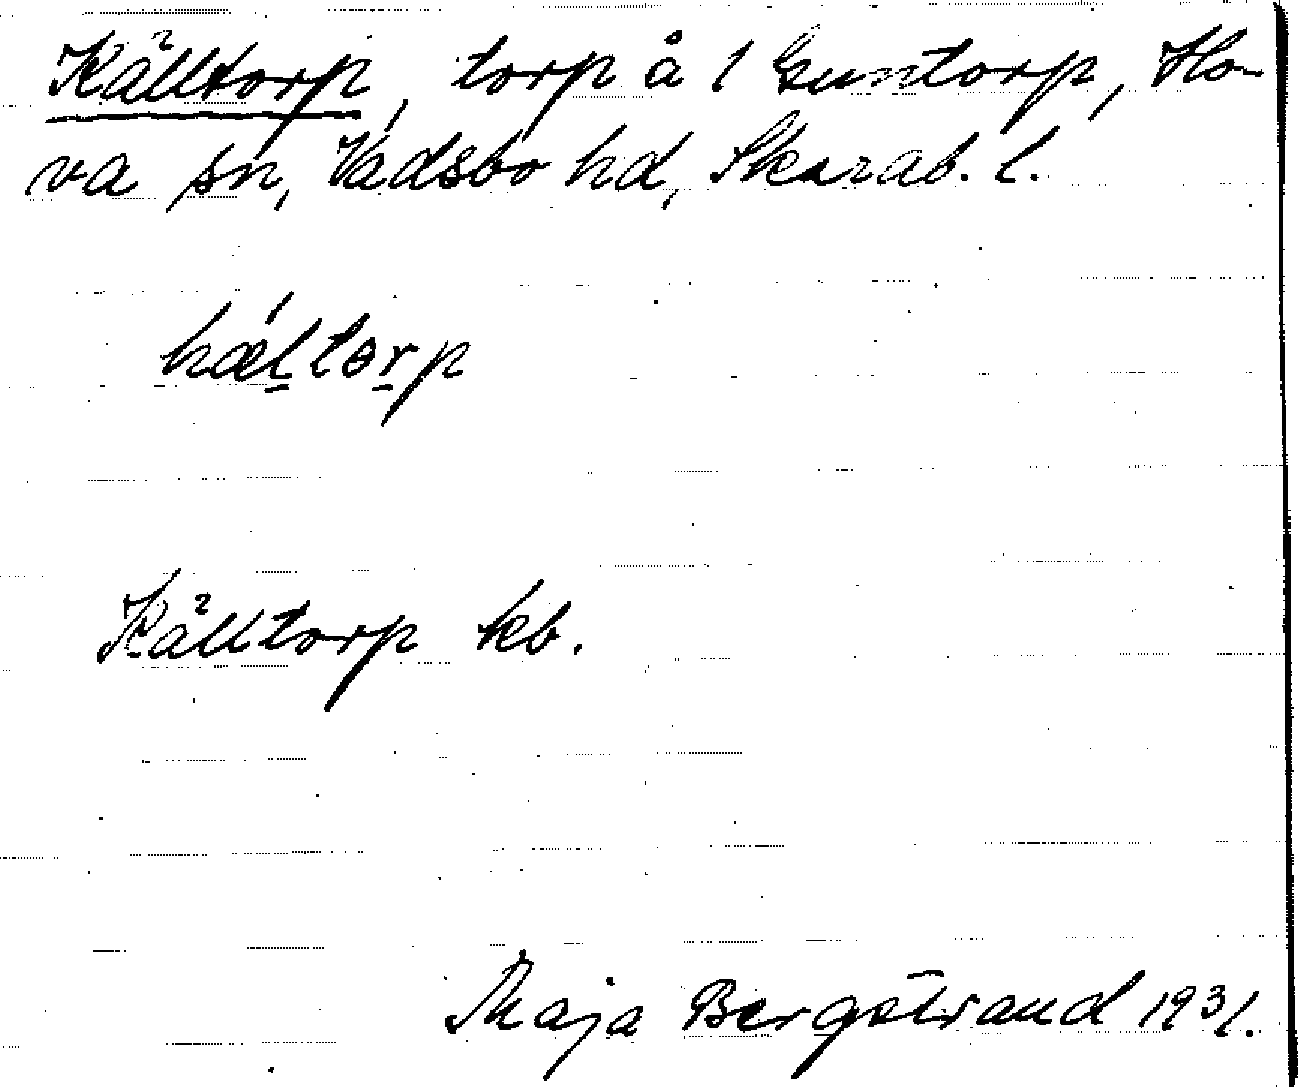 Källtorp, torp å 1 Guntorp, Ho-
va sn, Vadsbo hd, Skarab. l.
Källtorp kb.
Maja Bergstrand 1931.